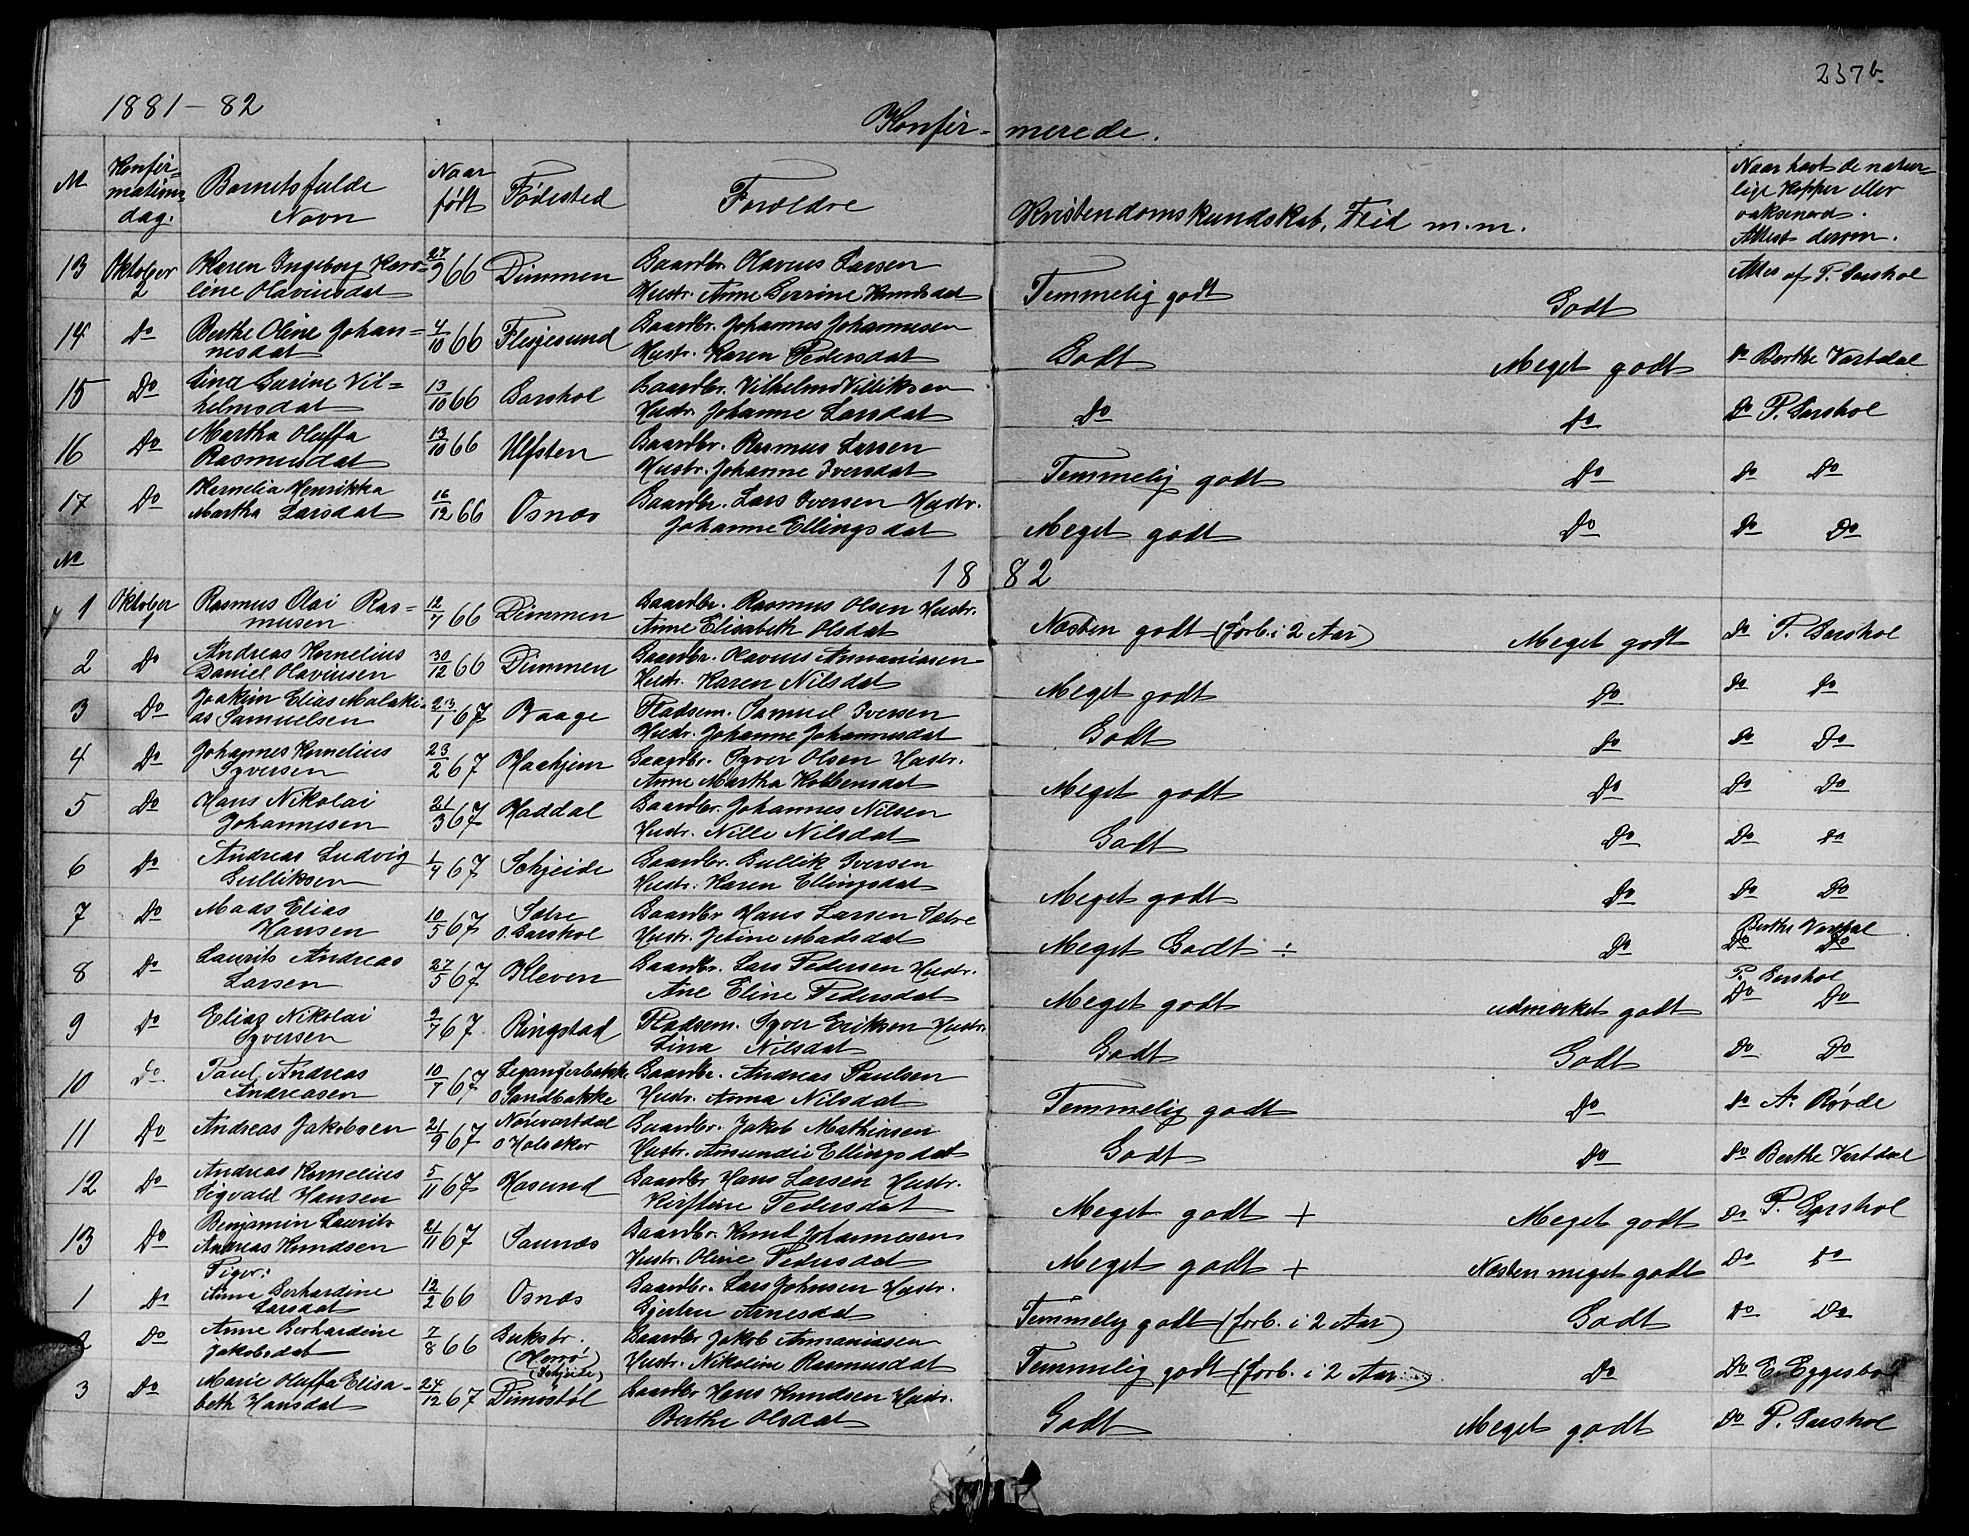 237b
1881-82
Konfir-merede.
№ Konfir=mations dag. Barnets fulde Navn Naar født Fødested Forældre Kristendomskundskab, Flid m.m. Naar havt de natur=lige Kopper eller vaksinerd. Attest derom.
13 Oktober 2 Karen Ingeborg Karo=line Olaviusdat 27/9 66 Dimmen Gaardbr. Olavius Larsen Hustr. Anne Serrine Knudsdat Temmelig godt Godt Attes af P. Garshol
14 Do Berthe Oline Johan=nesdat 4/10 66 Flusjesund Gaardbr. Johannes Johannesen Hustr. Karen Pedersdat Godt Meget godt Do Berthe Vartdal
15 Do Lina Gurine Vil=helmsdat 13/10 66 Garshol Gaardbr. Vilhelm Villiksen Hustr. Johanne Larsdat Do Do Do P. Garshol
16 Do Martha Oluffa Rasmusdat 13/10 66 Ulfsten Gaardbr. Rasmus Larsen Hustr. Johanne Iversdat Temmelig godt Do Do Do
17 Do Kornelia Henrikka Martha Larsdat 16/12 66 Osnæs Gaardbr. Lars Iversen Hustr. Johanne Ellingsdat Meget godt Do Do Do
№ 1882
1 Oktober 1 Rasmus Olai Ras=musen 12/7 66 Dimmen Gaardbr. Rasmus Olsen Hustr. Anne Elisabeth Olsdat Næsten godt (forb. i 2 Aar) Meget godt Do P. Garshol
2 Do Andreas Kornelius Daniel Olaviusen 30/12 66 Dimmen Gaardbr. Olavius Annaniasen Hustr. Karen Nilsdat Meget godt Do Do Do
3 Do Joakim Elias Malaki-as Samuelsen 23/1 67 Vaage Pladsem. Samuel Iversen Hustr. Johanne Johannesdat Godt Do Do Do
4 Do Johannes Kornelius Syversen 23/2 67 Haahjem Gaardbr. Syver Olsen Hustr. Anne Martha Kolbensdat Meget godt Do Do Do
5 Do Hans Nikolai Johannesen 21/3 67 Haddal Gaardbr. Johannes Nilsen Hustr. Nille Nilsdat Godt Do Do Do
6 Do Andreas Ludvig Gulliksen 1/4 67 Schjeide Gaardbr. Gullik Iversen Hustr. Karen Ellingsdat Meget godt Do Do Do
7 Do Mads Elias Hansen 10/5 67 Sætre o. Garshol Gaardbr Hans Larsen Sætre Hustr. Jetine Madsdat Meget Godt ÷ Do Berthe Vartdal Do Do
8 Do Laurits Andreas Larsen 27/5 67 Kleven Gaardbr. Lars Pedersen Hustr. Ane Eline Pedersdat Meget godt udmærket godt P. Garshol Do Do
9 Do Elias Nikolai Syversen 2/7 67 Ringstad Pladsem. Syver Eriksen Hustr. Lina Nilsdat Godt Godt Do Do
10 Do Paul Andreas Andreasen 10/7 67 Leganger­bakke o Sandbakke Gaardbr. Andreas Paulsen Hustr. Anna Nilsdat Temmelig godt Do Do A. Røvde
11 Do Andreas Jakobsen 21/9 67 Nørevartdal o Holsekor Gaardbr. Jakob Mathiasen Hustr. Amundie Ellingsdat Godt Do Do Berthe Vartdal
12 Do Andreas Kornelius Sigvald Hansen 5/11 67 Hasund Gaardbr Hans Larsen Hustr. Kirstine Pedersdat Meget godt + Meget godt Do P. Garshol
13 Do Benjamin Laurits Andreas Knudsen 21/11 67 Saunæs Gaardbr. Knut Johannesen Hustr. Oline Pedersdat Meget godt + Næsten meget godt Do Do
Piger:
1 Do Anna Berhardine Larsdat 12/2 66 Osnæs Gaardbr. Lars Johnsen Hustr. Gjertru Arnesdat Temmelig godt (forb. i 2 Aar) Godt Do Do
2 Do Anne Berhardine Jakobsdat 7/8 66 Buksbr. (Herrø) Gaardbr Jakob Annaniassen Hustr. Nikoline Rasmusdat Temmelig godt (forb. i 2 Aar) Do Do E. Eggesbø
3 Do Marie Oluffa Elisa-beth Hansdat 24/12 67 (Schjeide) Dimostøl Gaardbr Hans Knudsen Hustr. Berthe Olsdat Godt Meget godt Do P. Garshol